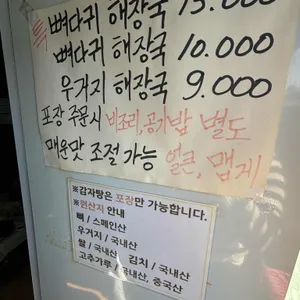 특 뼈다귀 해장국 13.000
뼈다귀 해장국 10.000
우거지 해장국 9.000
포장 주문시 비조리,공기밥 별도
매운맛 조절 가능 얼큰, 맵게
※감자탕은 포장만 가능합니다.
※원산지 안내
뼈 / 스페인산
우거지 / 국내산
쌀 / 국내산 김치 / 국내산
고추가루 / 국내산, 중국산